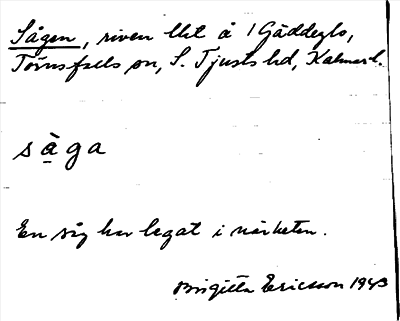 Sågen, riven lht å 1 Gäddeglo,
Törnsfalls sn, S. Tjusts hd, Kalmar l.
så̀ga
En såg har legat i närheten.
Birgitta Ericsson 1943